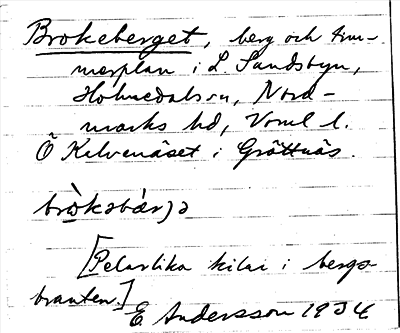 Brokeberget, berg och tim-
merplan i L. Sundsbyn,
Holmedals sn, Nord-
marks hd, Vrml l.
Ö Kelvenäset i Gröttnäs.
bròkabærja
[Pelarlika kilar i bergs
branten.]
E Andersson 1934